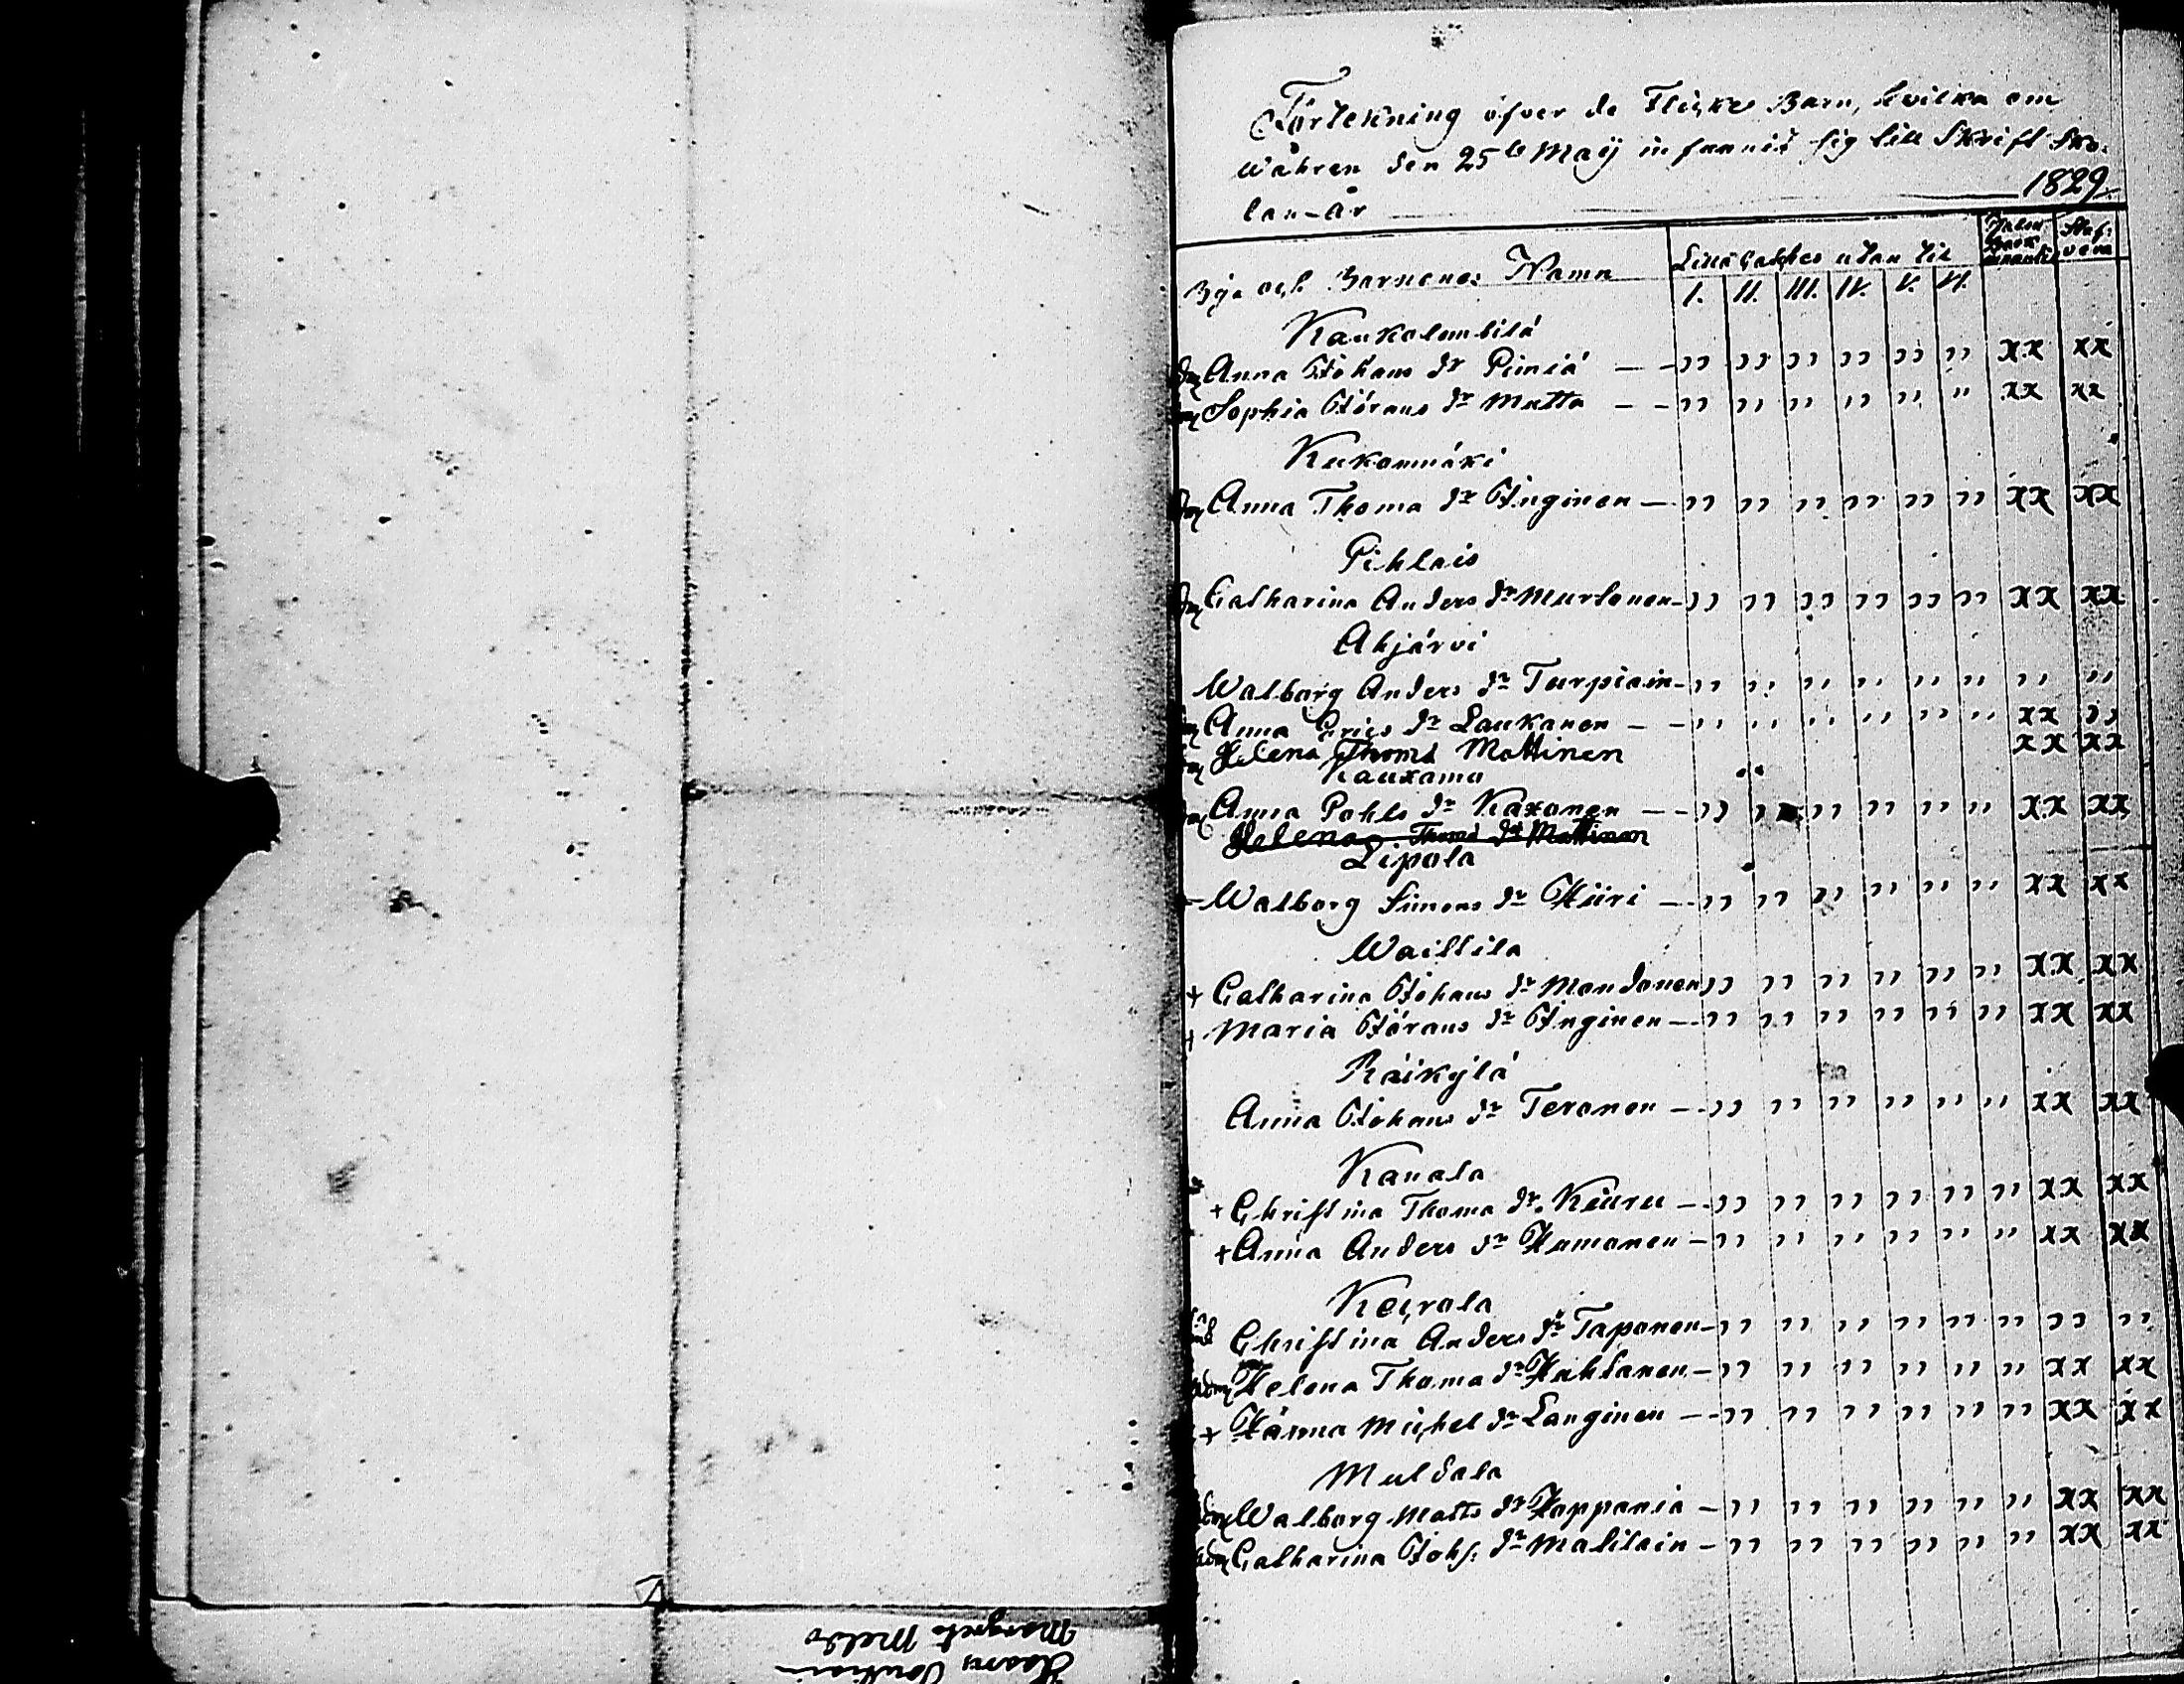 Förtekning öfver de Flicke Barn, hvilka om
Wåhren den 25te Maij infunnit sig till Skrift Sko-
lan-År 1829.
Byr och Barnenes Namn I. II. III. IV. V. VI.
Kaukolembilä
Anna Johans dr Piiniä — — ,, ,, ,, ,, ,, ,, xx xx
Sophia Görans dr Mutta — — ,, ,, ,, ,, ,, ,, xx xx
Kukonmäki
Anna Thoma dr Inginen — ,, ,, ,, ,, ,, ,, xx xx
Pihlais
Catharina Anders dr Murtonen — ,, ,, ,, ,, ,, ,, xx xx
Ahjärvi
Walborg Anders dr Turpiain — ,, ,, ,, ,, ,, ,, ,, ,,
Anna Erics dr Laukanen — — ,, ,, ,, ,, ,, ,, xx ,,
Helena Thoms Mattinen xx xx
Kauxamo
Anna Pohls dr Kaxonen — — ,, ,, ,, ,, ,, ,, xx xx
Helena Thoms dr Mattinen
Lipola
Walborg Simons dr Hiiri — ,, ,, ,, ,, ,, ,, xx xx
Waittila
+ Catharina Johans dr Mondonen ,, ,, ,, ,, ,, ,, xx xx
+ Maria Görans dr Inginen — ,, ,, ,, ,, ,, ,, xx xx
Räikylä
Anna Johans dr Teronen — ,, ,, ,, ,, ,, ,, xx xx
Kanala
+ Christina Thoma dr Kiuru — ,, ,, ,, ,, ,, ,, xx xx
+ Anna Anders dr Hamonen — ,, ,, ,, ,, ,, ,, xx xx
Keirola
Christina Anders dr Taponen — ,, ,, ,, ,, ,, ,, ,, ,,
Helena Thoma dr Huhtanen — ,, ,, ,, ,, ,, ,, xx xx
+ Hänna Michel dr Langinen — ,, ,, ,, ,, ,, ,, xx xx
Muldala
Walborg Matts dr Happonia — ,, ,, ,, ,, ,, ,, xx xx
Catharina Johs: dr Malilain — ,, ,, ,, ,, ,, ,, xx xx